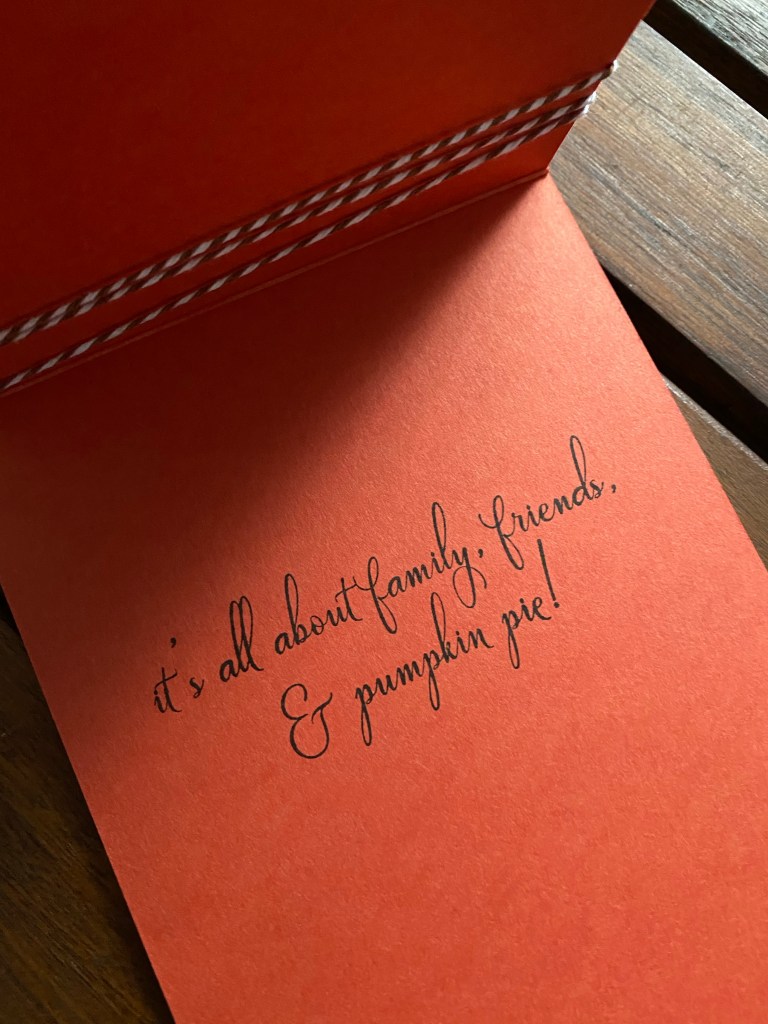 it's all about family, friends,
& pumpkin pie!